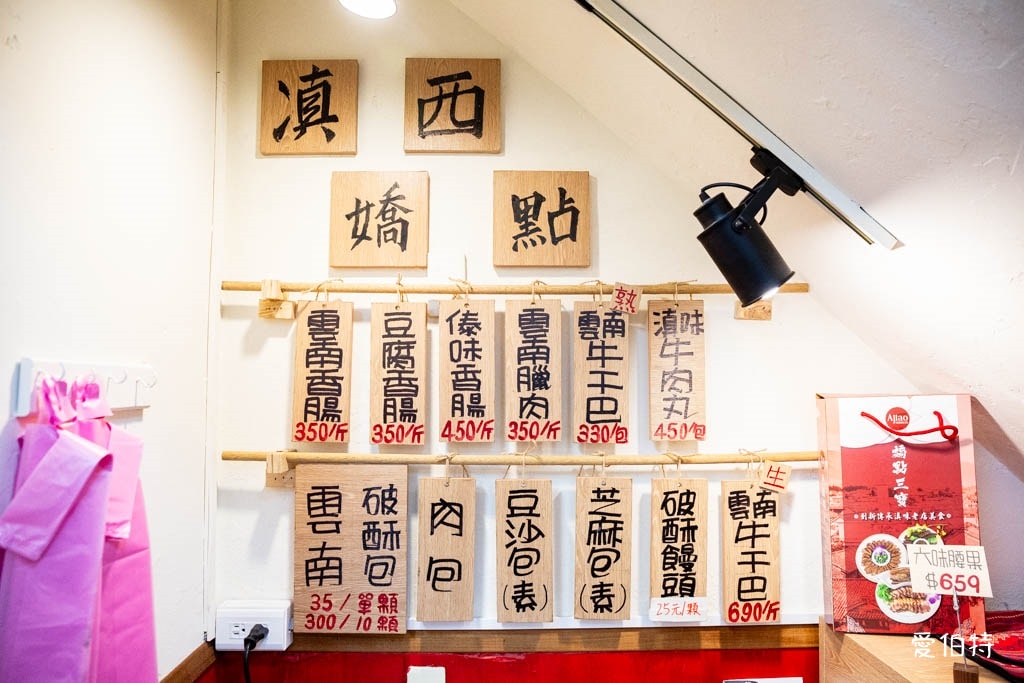 滇西
嬌點
雲南香腸
350/斤
豆腐香腸
350/斤
傣味香腸
450/斤
雲南臘肉
350/斤
熟
雲南牛干巴
330/包
滇味牛肉丸
450/包
雲南
破酥包
35/單顆
300/10顆
肉包
豆沙包(素)
芝麻包(素)
破酥饅頭
25元/顆
生
雲南牛干巴
690/斤
AJiao
嬌點三寶
創新傳承滇味老店美食
六味腰果
$659
愛伯特